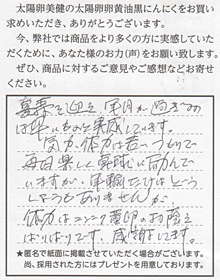 太陽卵美健の太陽卵卵黄油黒にんにくをお買い
求めいただき、ありがとうございます。
今、弊社では商品をより多くの方に実感していた
だくために、あなた様のお力(声)をお願い致します。
ぜひ、商品に対するご意見やご感想などお寄せ
ください。
喜寿を迎え 実月が過ぎるの
は早いものと実感しています。
気力、体力は若いつもりで
毎日楽しく
いますが、年齢だけはどう
しようもありませんが、
体力はニンニク黄卵のお陰で
ばりばりです。感謝してます。
★匿名で紙面に掲載させていただく場合がございます。
尚、採用された方にはプレゼントを用意しております。